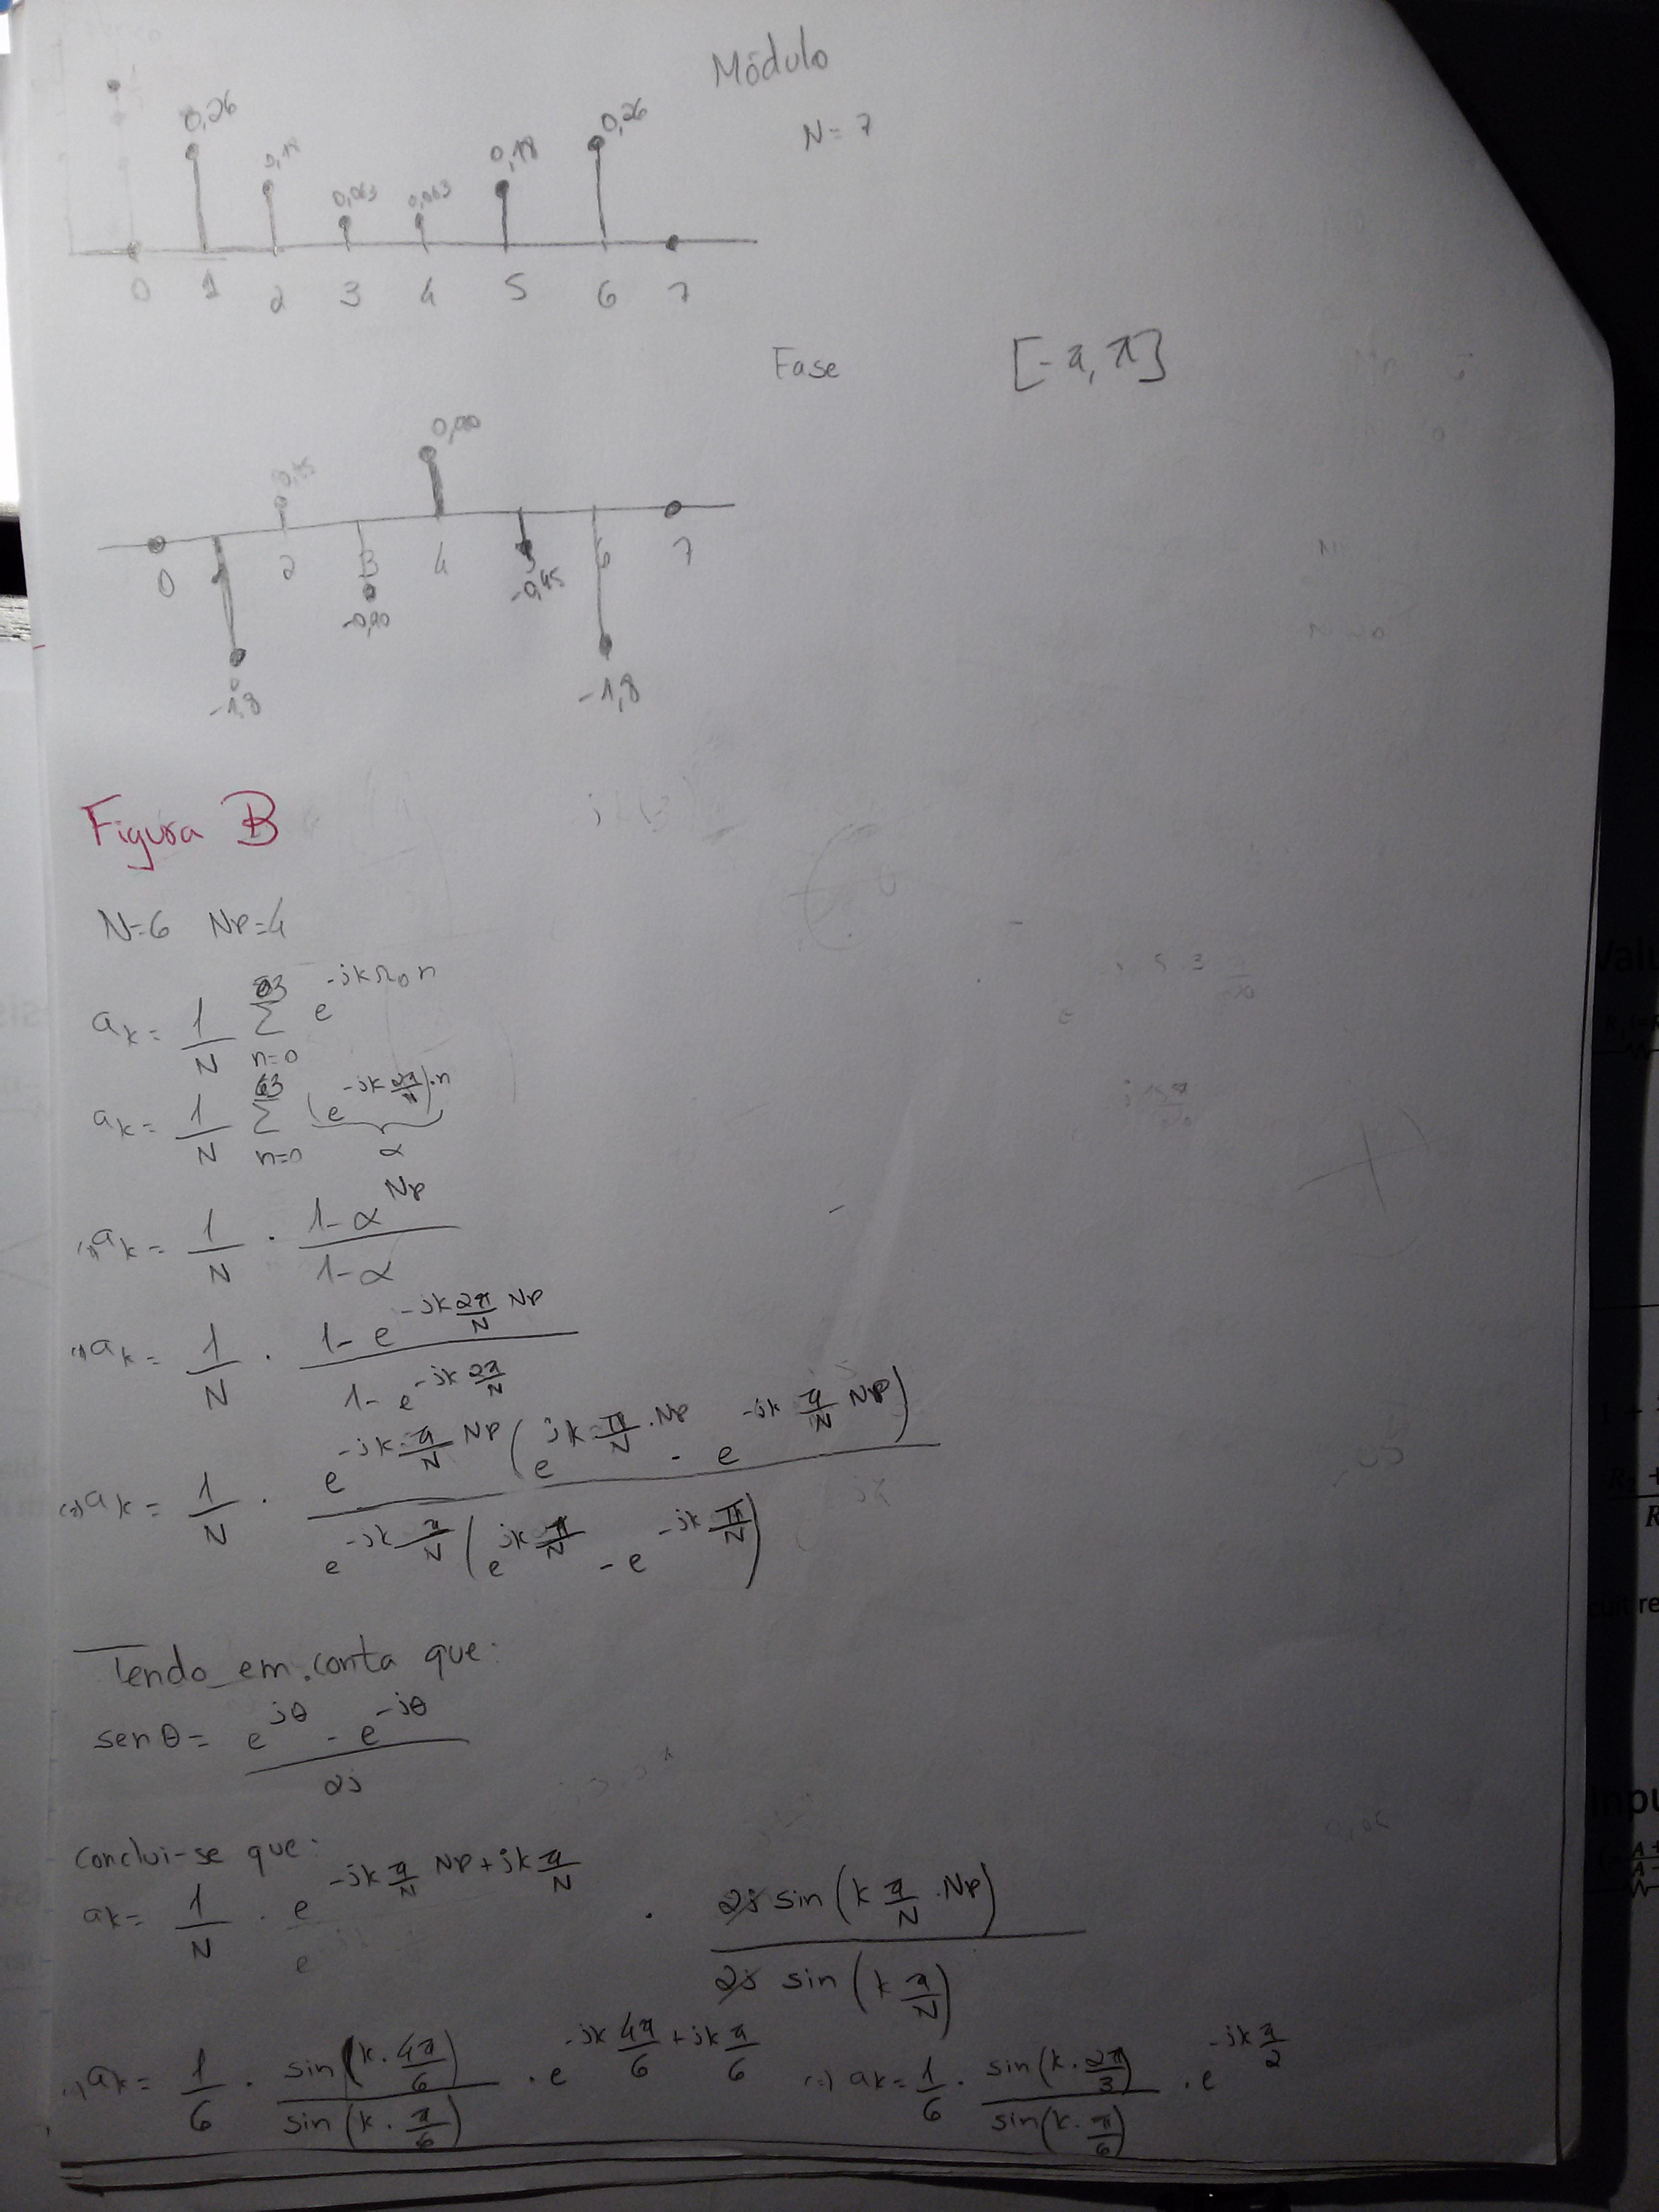 Módulo
N = 7
0,26
0,18
0,063
0,063
0,18
0,26
0 1 2 3 4 5 6 7
Fase [-π, π]
0,45
0,90
0 2 3 4 6 7
-0,90
-0,45
-1,8
-1,8
Figura B
N=6 Np=4
ak = 1/N Σ n=0 3 e^(-jkΩ0n)
ak = 1/N Σ n=0 3 (e^(-jk 2π/N))·n α
(=) ak = 1/N · (1-α^Np)/(1-α)
(=) ak = 1/N · (1-e^(-jk 2π/N Np))/(1-e^(-jk 2π/N))
(=) ak = 1/N · e^(-jk·π/N Np) (e^(jk·π/N·Np) - e^(-jk π/N Np)) / e^(-jk π/N) (e^(jk π/N) - e^(-jk π/N))
Tendo em conta que:
sen θ = (e^(jθ) - e^(-jθ))/2j
Conclui-se que:
ak = 1/N · e^(-jk π/N Np + jk π/N) · 2j sin(k π/N ·Np) / 2j sin(k π/N)
(=) ak = 1/6 · sin(k·4π/6)/sin(k·π/6) · e^(-jk 4π/6 + jk π/6) (=) ak = 1/6 · sin(k·2π/3)/sin(k·π/6) · e^(-jk π/2)